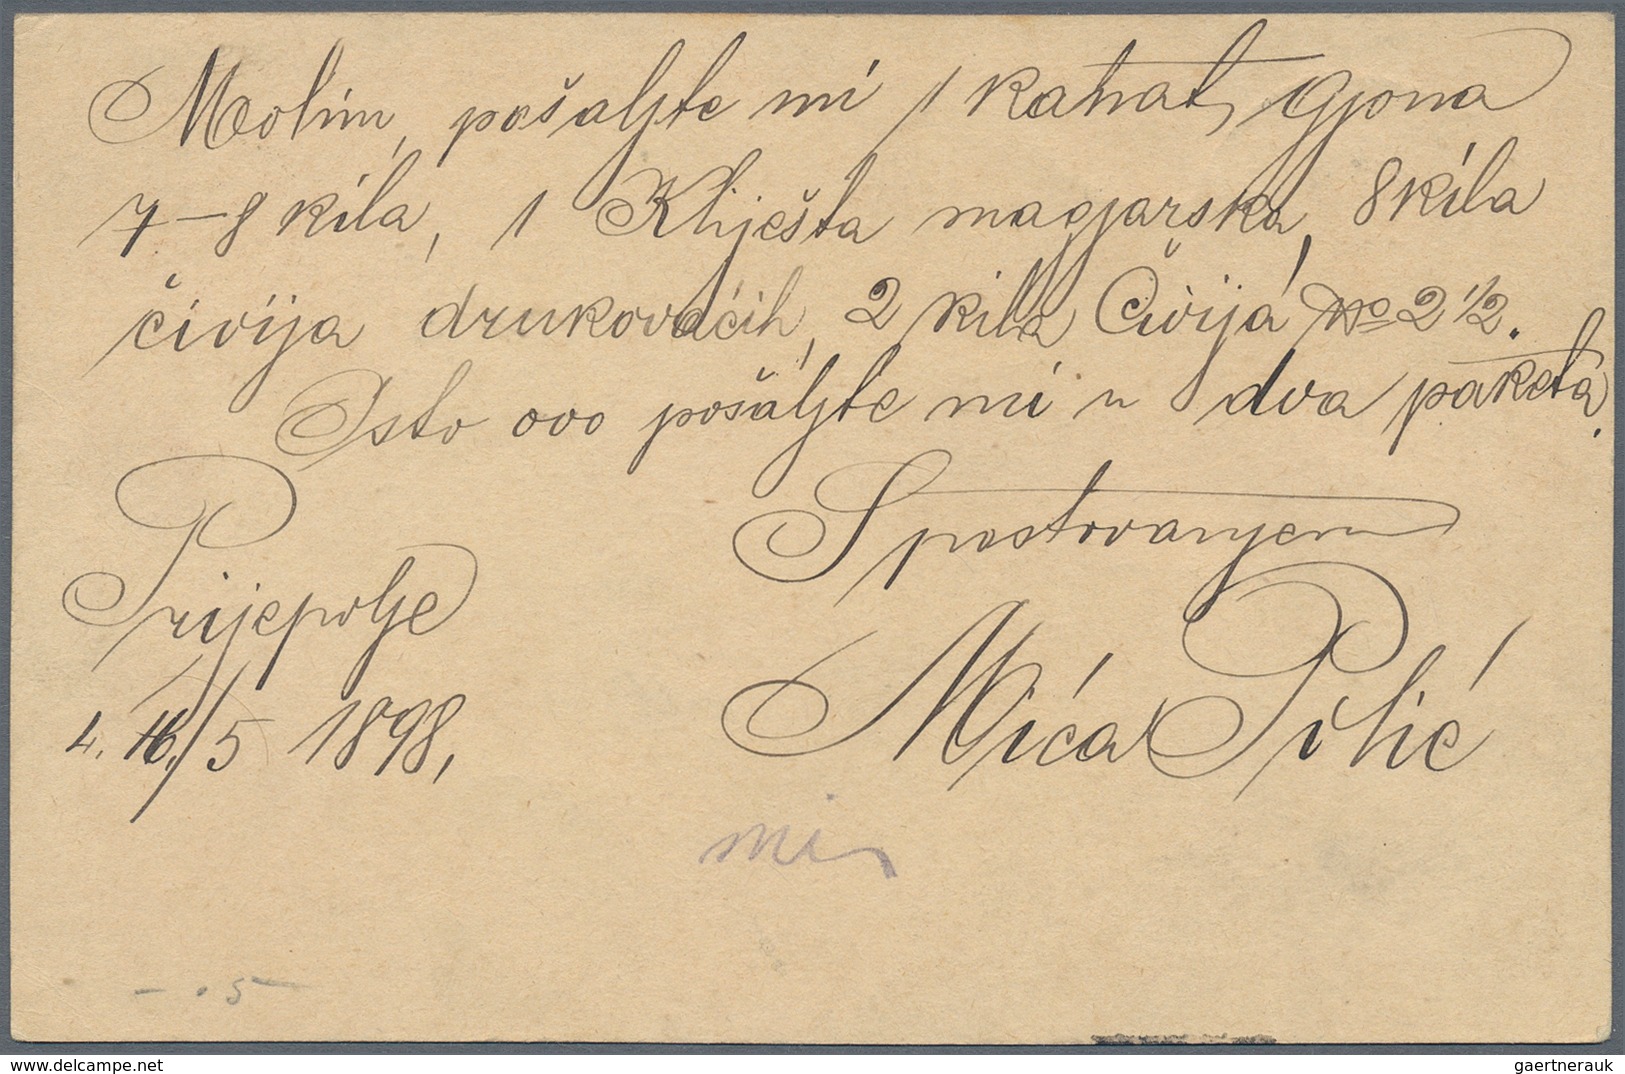 Molim, pošaljte mi 1 kanat gjona
7–8 kila, 1 Kliješta magjarska, 8 kila
čivija drukovaćih, 2 kila Čivija No 2 1/2.
Isto ovo pošaljte mi u dva paketa.
S poštovanjem
Prijepolje
Mića Pilić
4. 16/5 1898,
- . 5
delcampe.net
gaertnerauk